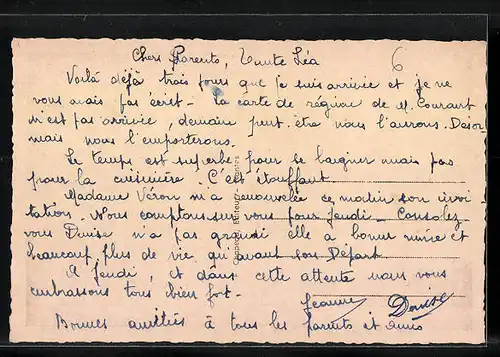 6
Chers Parents, Tante Léa
Voilà déjà trois jours que je suis arrivée et je ne
vous avais pas écrit - la carte de de M. Courant
n'est pas arrivée, demain peut être nous l'aurons. Désor
mais nous l'emporterons.
Le temps est superbe pour se baigner mais pas
pour la cuisinière C'est étouffant
Madame Véron m'a renouvelée ce matin son invi
tation. Nous comptons sur vous pour jeudi - Consolez
vous Denise n'a pas grandi elle a bonne mine et
beaucoup plus de vie qu'avant son Départ
A jeudi, et dans cette attente nous vous
embrassons tous bien fort -
Jeanne Denise
Bonnes amitiés à tous les parents et amis